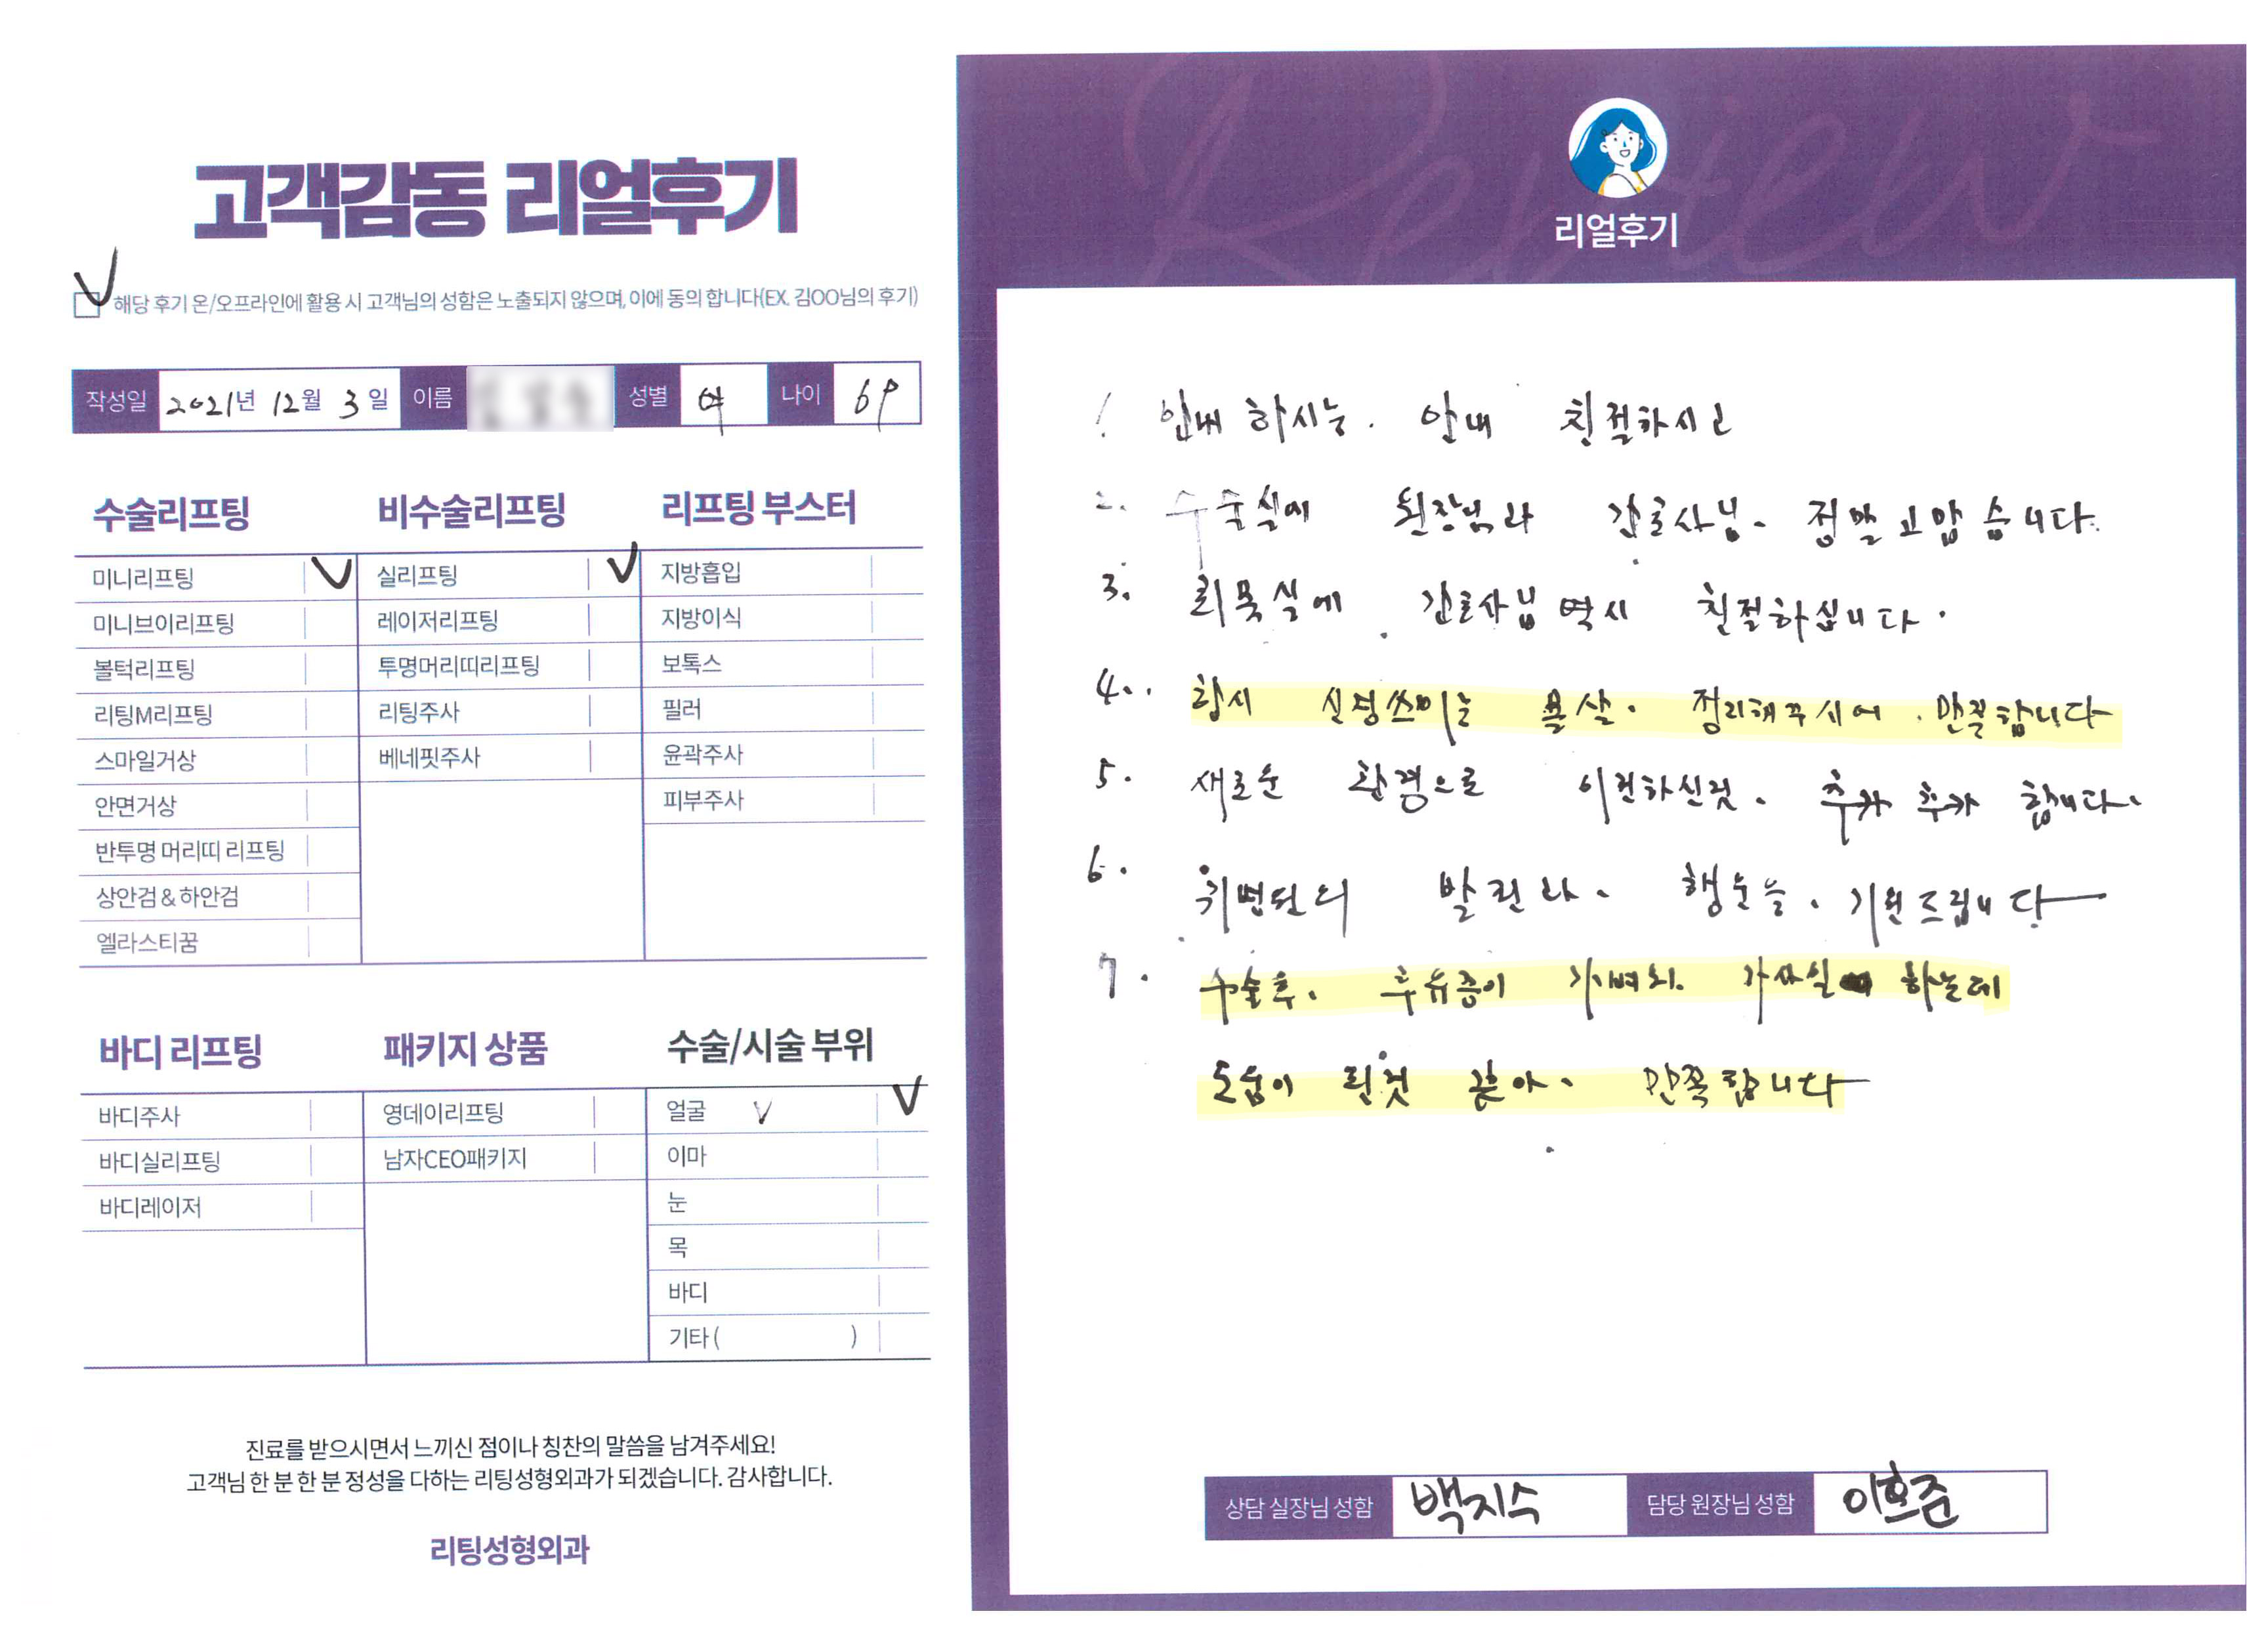 고객감동 리얼후기
해당 후기 온/오프라인에 활용 시 고객님의 성함은 노출되지 않으며, 이에 동의 합니다(EX. 김OO님의 후기)
작성일 2021년 12월 3일 이름 성별 여 나이 69
수술리프팅
미니리프팅
미니브이리프팅
볼턱리프팅
리팅M리프팅
스마일거상
안면거상
반투명 머리띠 리프팅
상안검 & 하안검
엘라스티꿈
비수술리프팅
실리프팅
레이저리프팅
투명머리띠리프팅
리팅주사
베네핏주사
리프팅 부스터
지방흡입
지방이식
보톡스
필러
윤곽주사
피부주사
바디 리프팅
바디주사
바디실리프팅
바디레이저
패키지 상품
영데이리프팅
남자CEO패키지
수술/시술 부위
얼굴
이마
눈
목
바디
기타 ( )
진료를 받으시면서 느끼신 점이나 칭찬의 말씀을 남겨주세요!
고객님 한 분 한 분 정성을 다하는 리팅성형외과가 되겠습니다. 감사합니다.
리팅성형외과
Review
리얼후기
1 안내 하시는. 안내 친절하시고
2. 수술실에 원장님과 간호사님. 정말 고맙습니다.
3. 회복실에 간호사님 역시 친절하십니다.
4. 항시 신경쓰이는 볼살. 정리해주시어. 만족합니다
5. 새로운 환경으로 이전하신것. 추카 추카 합니다.
6. 귀병원의 발전과. 행운을. 기원드립니다
7. 수술후. 후유증이 가벼워. 가사일 하는데
도움이 된것 같아. 만족합니다
상담 실장님 성함 백지수 담당 원장님 성함 이호준